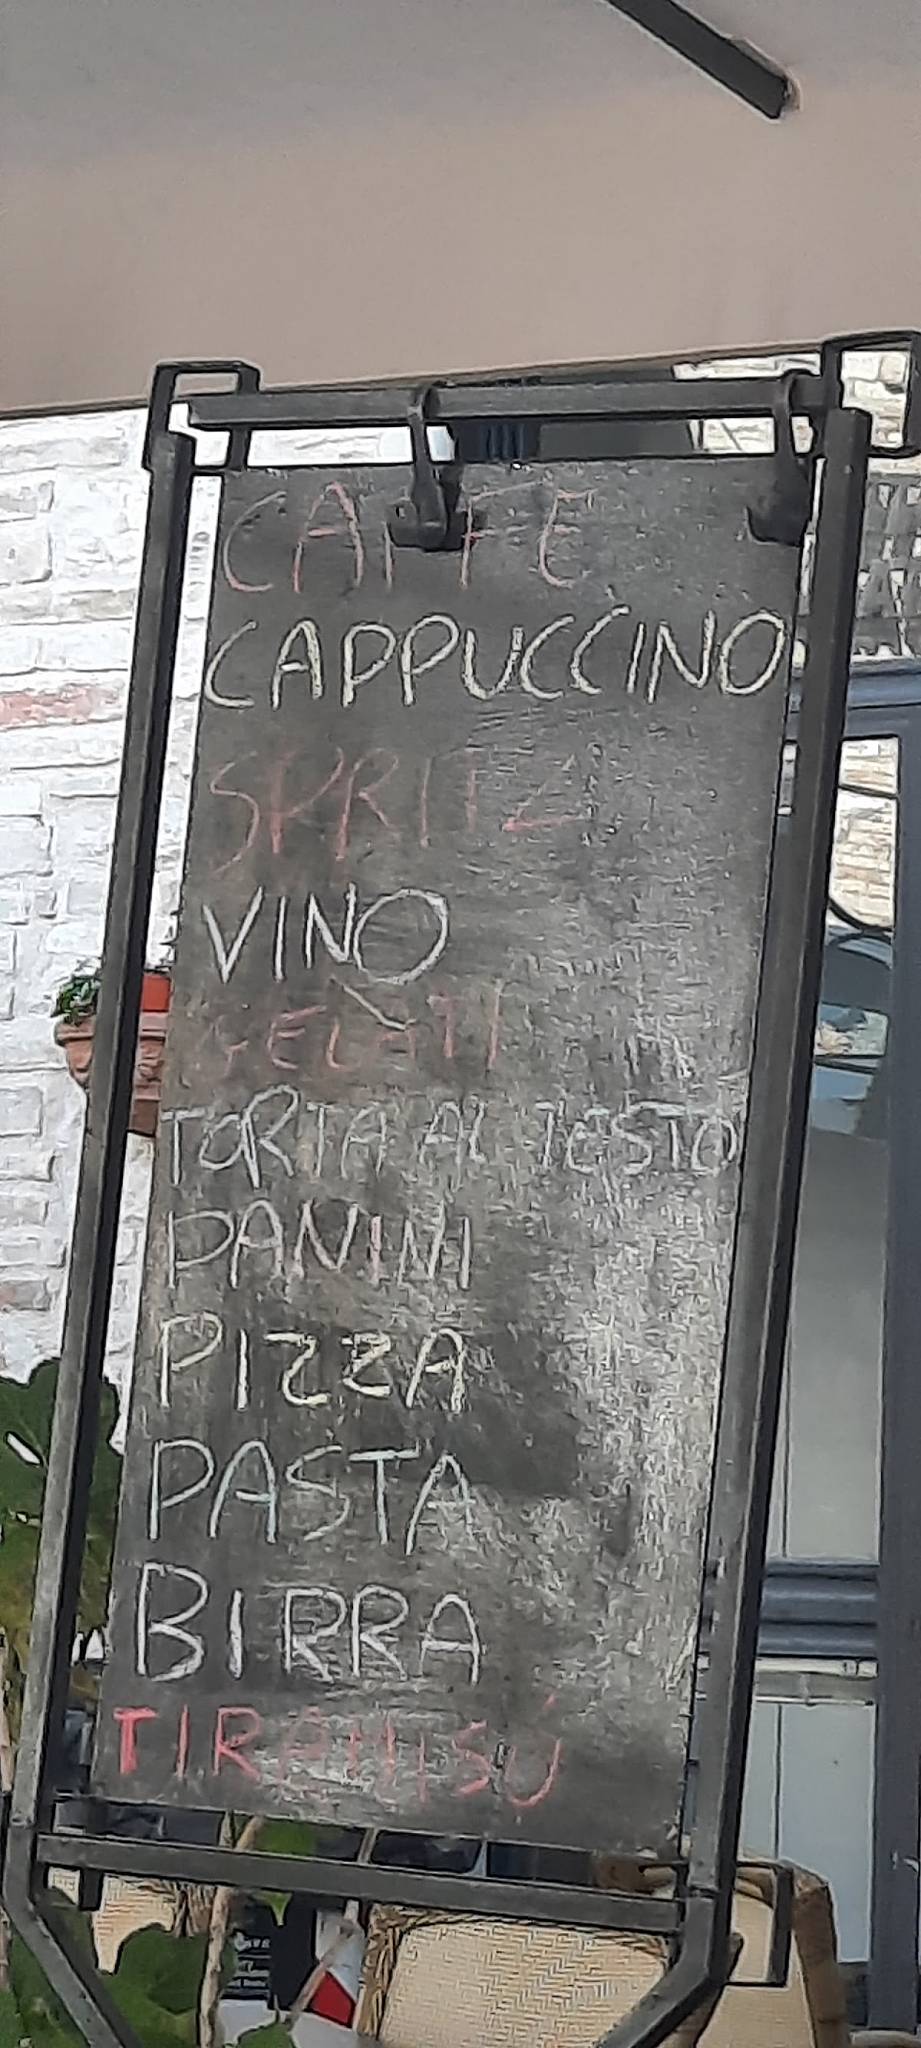 CAFFE
CAPPUCCINO
SPRITZ
VINO
GELATI
TORTA AL TESTO
PANINI
PIZZA
PASTA
BIRRA
TIRAMISÚ